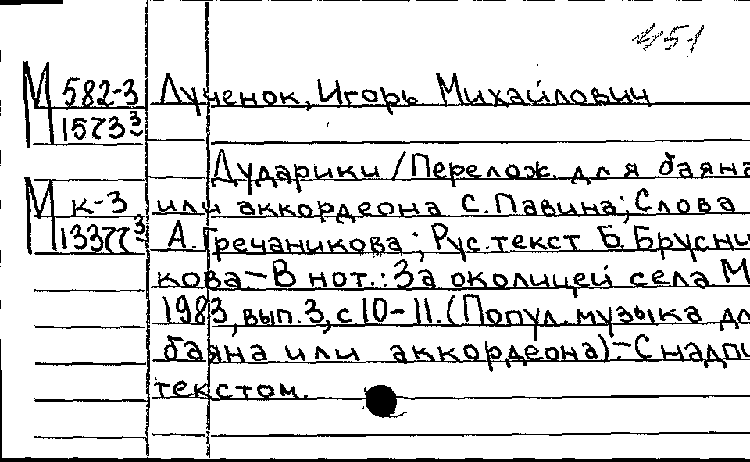 451
М 582-3 Лученок, Игорь Михайлович
15733
Дударики / Перелож. для баяна
М к-3 или аккордеона С. Павина; Слова
13377 3 А. Гречаникова; Рус. текст Б. Брусни
кова - В нот.: За околицей села М
1983, вып. 3, с 10-11. (Попул. музыка дл
баяна или аккордеона). - С надпи
текстом.